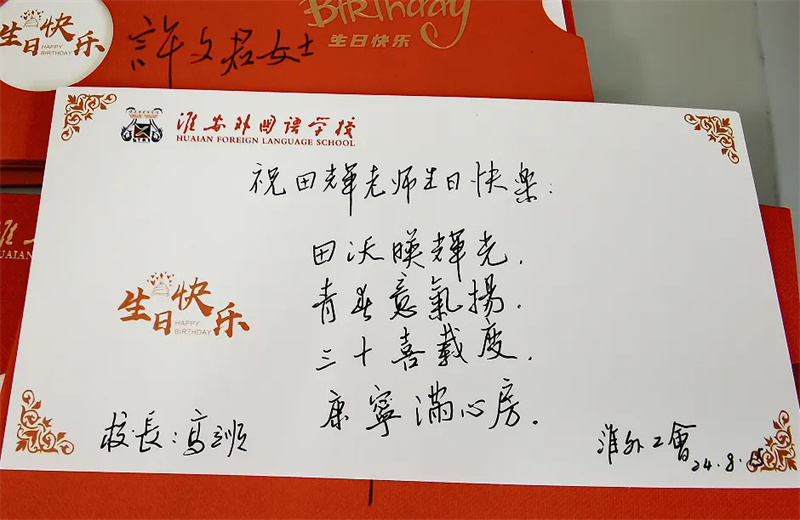 Birthday
生日快乐
生日快乐
HAPPY
BIRTHDAY
許文君女士
淮安外国语学校
HUAIAN FOREIGN LANGUAGE SCHOOL
祝田輝老师生日快樂:
田沃暎輝光,
青春意氣揚.
三十喜載度,
康寧滿心房.
生日快乐
HAPPY
BIRTHDAY
校長:高顺
淮外工會
24.8.